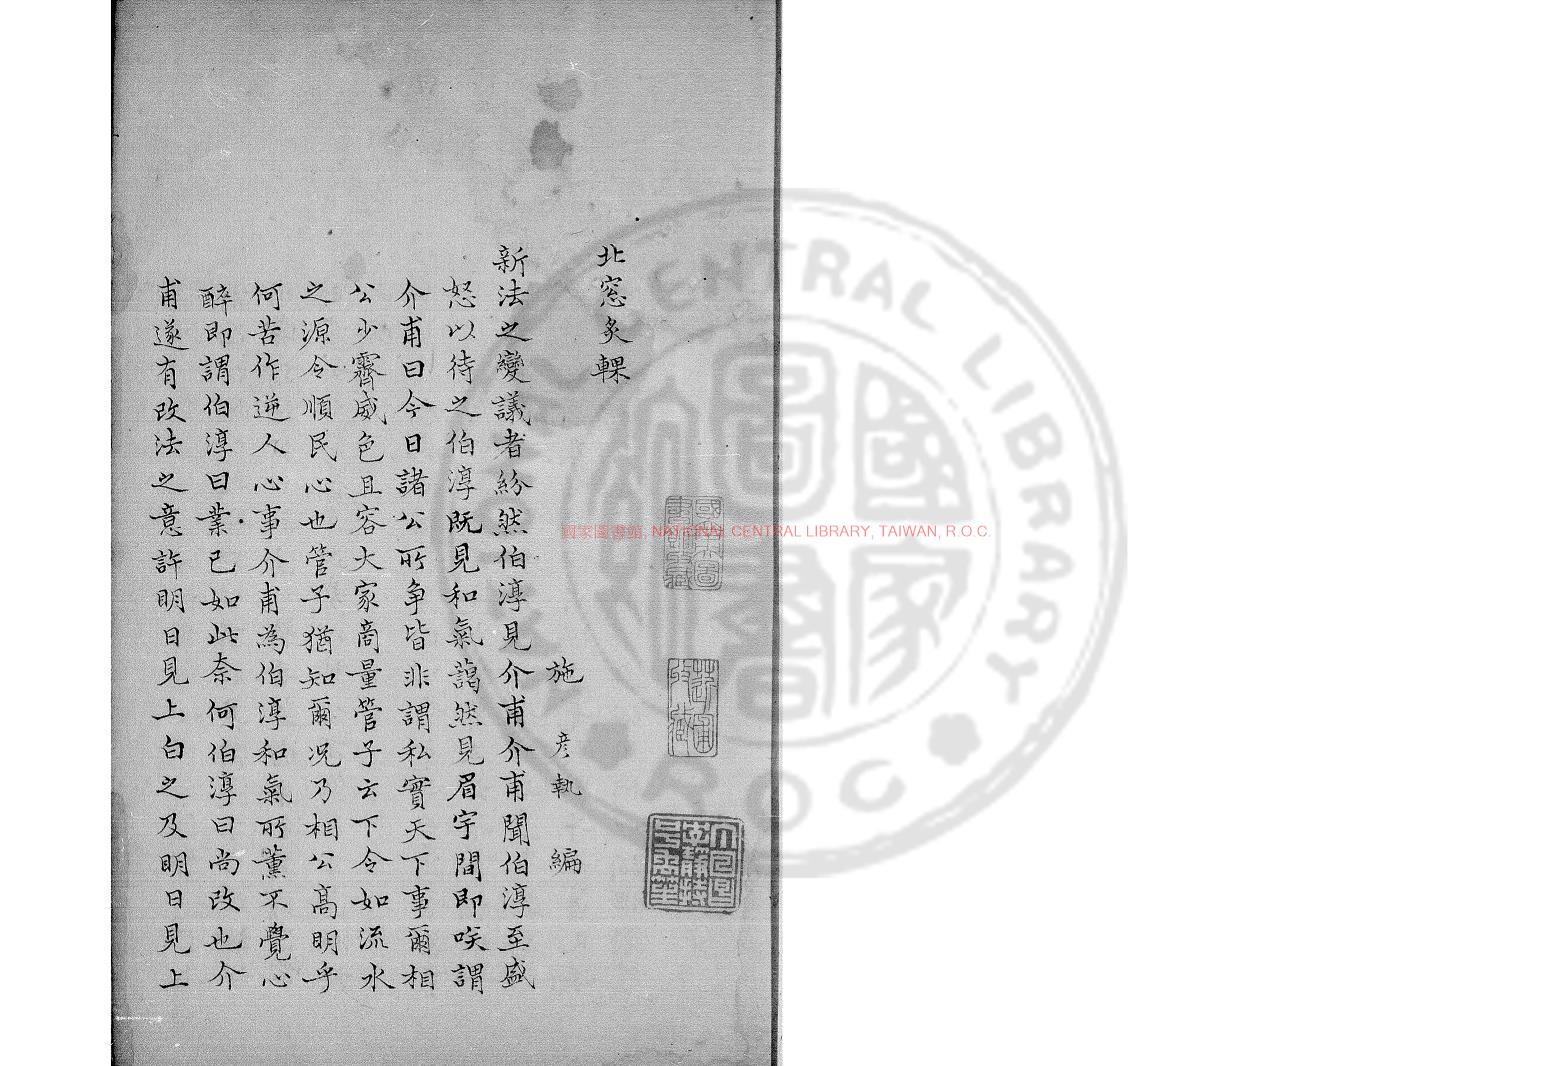 北窓炙輠
施彦執編
新法之變議者紛然伯淳見介甫介甫聞伯淳至盛
怒以待之伯淳既見和氣藹然見眉宇間即唉謂
介甫曰今日諸公所争皆非謂私實天下事爾相
公少霽威色且容大家商量管子云下令如流水
之源令順民心也管子猶知爾况乃相公髙明乎
何苦作逆人心事介甫為伯淳和氣所薰不覺心
醉即謂伯淳曰業已如此奈何伯淳曰尚改也介
甫遂有改法之意許明日見上白之及明日見上
國家圖書館, NATIONAL CENTRAL LIBRARY, TAIWAN, R.O.C.
CENTRAL LIBRARY
ROC
國家圖書